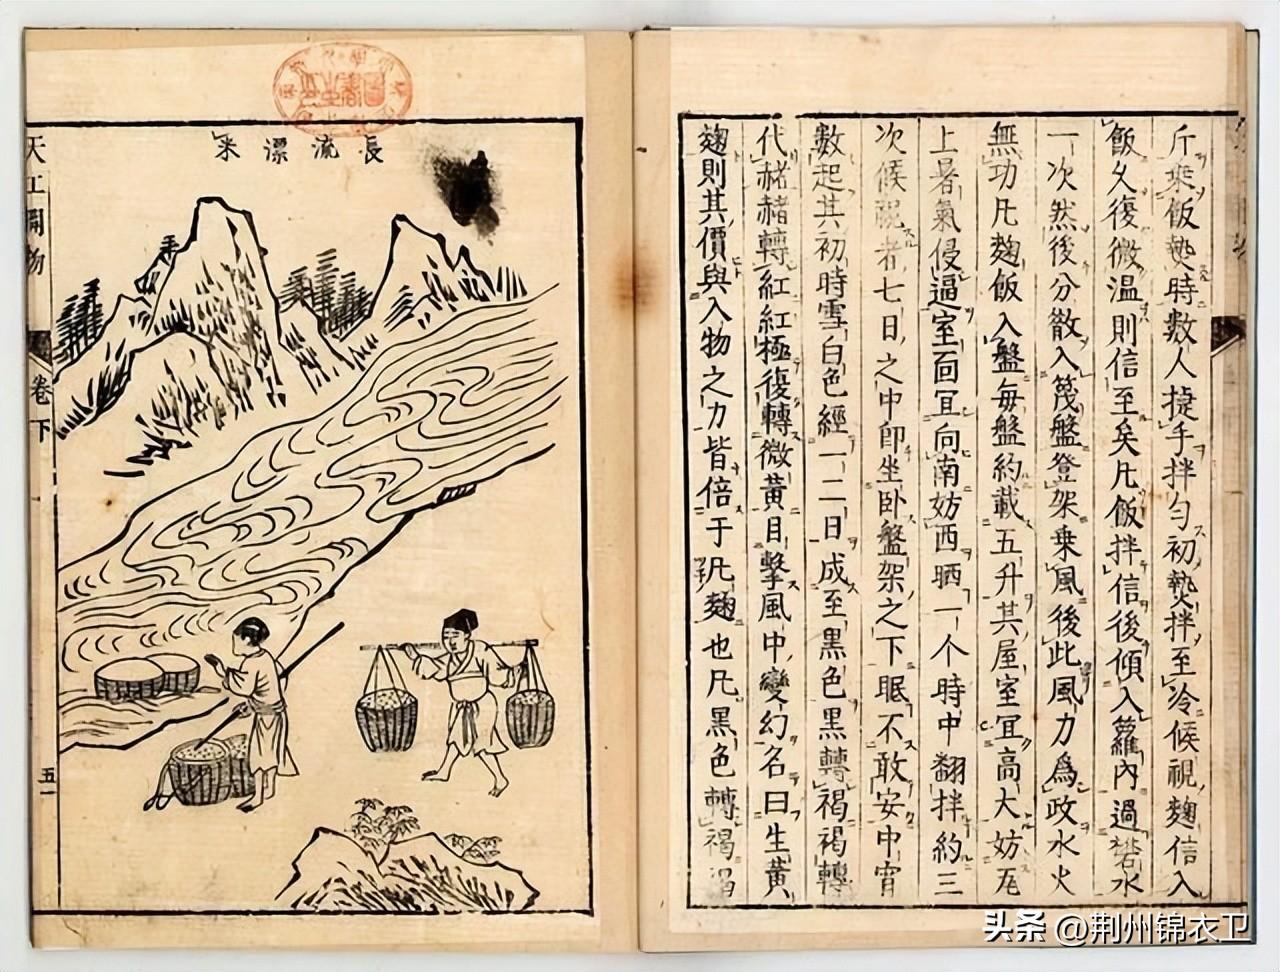 斤乗飯熱時數人捷手拌勻初熱拌至冷候視麴信入
飯久復微温則信至矣凡飯拌信後傾入籮内過礬水
一次然後分散入篾盤登架乗風後此風力爲政水火
無功凡麴飯入盤毎盤約載五升其屋室宜高大妨瓦
上暑氣侵逼室面宜向南妨西晒一个時中翻拌約三
次候視者七日之中即坐卧盤架之下眠不敢安中宵
數起其初時雪白色經一二日成至黒色黒轉褐褐轉
代赭赭轉紅紅極復轉微黄目擊風中變幻名曰生黄
麴則其價與入物之力皆倍于凡麴也凡黒色轉褐褐
長流漂米
天工開物 卷下 五一
头条 @荆州锦衣卫